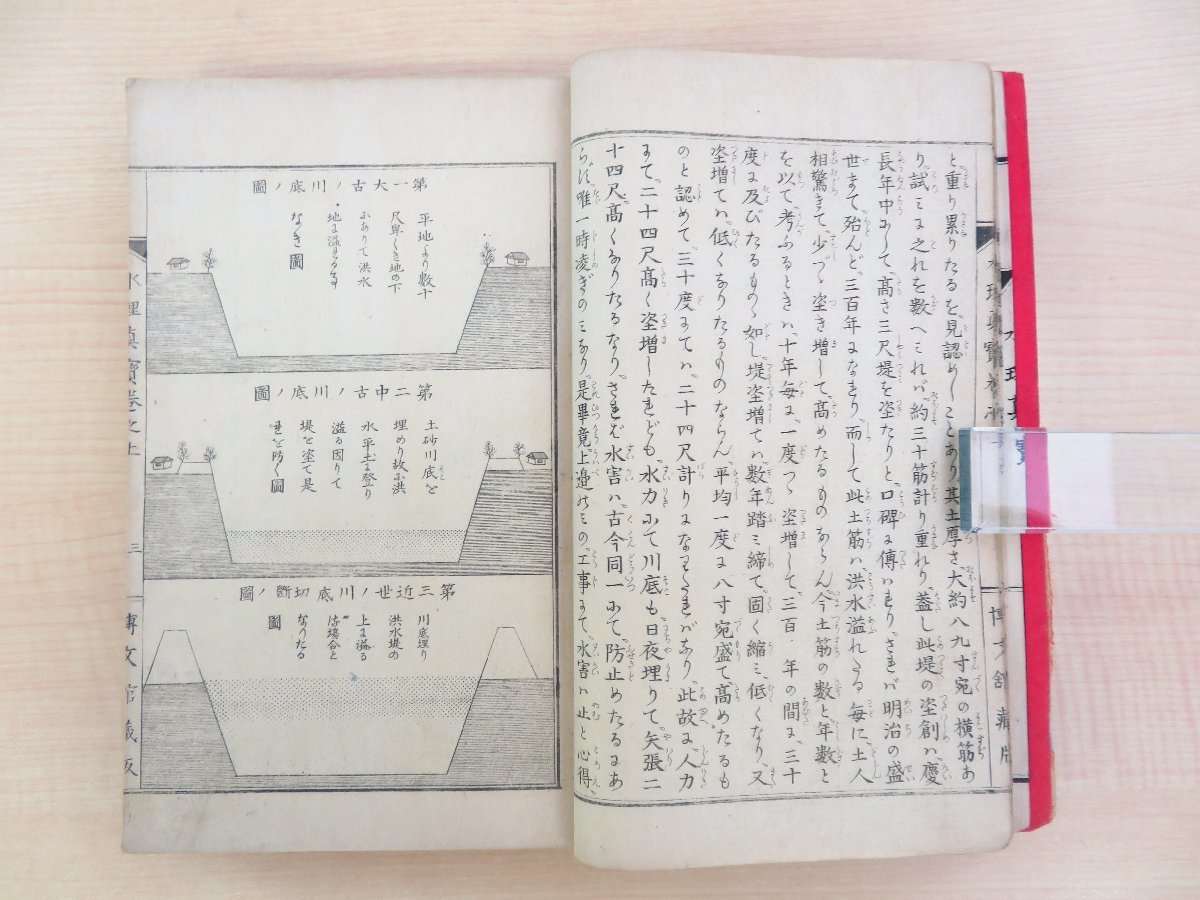 と重り累りたるを見認めしことあり其土厚さ大約八九寸宛の横筋あ
り試ミに之れを數へミれバ約三十筋計り重れり蓋し此堤の埊創ハ慶
長年中にして高さ三尺堤を埊たりと口碑に傳はれりされバ明治の盛
世まて殆んど三百年になれり而して此土筋ハ洪水溢れたる每に土人
相驚きて少つゝ埊き增して高めたるものならん今土筋の數と年數と
を以て考ふるときハ十年每に一度つゝ埊增して三百年の間に三十
度に及びたるものゝ如し堤埊增てハ數年踏ミ締て固く縮ミ低くなり又
埊增てハ低くなりたるものならん平均一度に八寸宛盛て高めたるも
のと認めて三十度にてハ二十四尺計りになるべきバなり此故に人力
まて二十四尺高く埊增したれども水力にて川底も日夜埋りて矢張二
十四尺高くなりたるなりされば水害ハ古今同一にて防止めたるにあ
らず唯一時凌ぎのミなり是畢竟上邉のミの工事にて水害ハ止と心得
第一大古ノ川底ノ圖
平地より數十
尺卑くき地の下
にありて洪水
地に溢るゝ事
なき圖
第二中古ノ川底ノ圖
土砂川底を
埋めり故に洪
水平土に登り
溢る因りて
堤を埊て是
れを防く圖
第三近世ノ川底切斷ノ圖
川底埋り
洪水堤の
上に溢る
塲合と
なりたる
圖
水理眞寶卷之上
三
博文館藏版